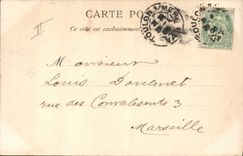 CARTE PO
Ce côté est exclusivement
TOULON S/MER
TOULON
II
Monsieur
Louis
rue des Convalescents 3
Marseille